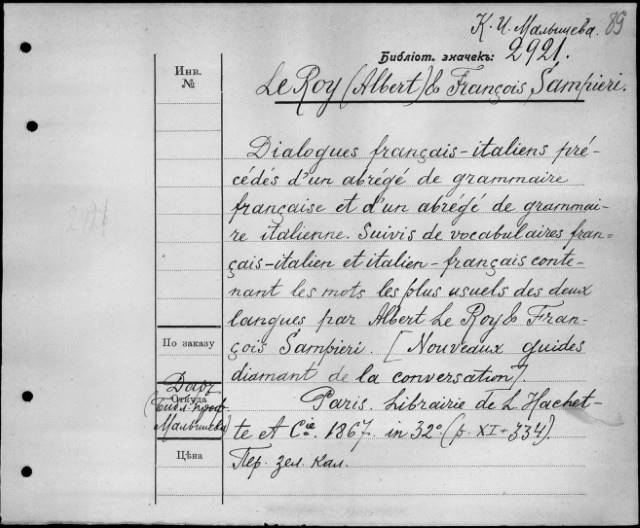 К. И. Малышева. 89
Библіот. значекъ: 2921.
Инв.
№
Le Roy (Albert) & François Sampieri.
Dialogues français-italiens pré-
cédés d'un abrégé de grammaire
française et d'un abrégé de grammai-
re italienne. Suivis de vocabulaires fran-
çais-italien et italien-français conte-
nant les mots les plus usuels des deux
langues par Albert Le Roy & Fran-
çois Sampieri. [Nouveaux guides
diamant de la conversation].
Paris. Librairie de L. Hachet-
te et Cie. 1867. in 32°. (p. XI+334).
Пер. зел. кал.
2921
По заказу
Даръ
Откуда
(Библ. проф.
Малышева)
Цѣна